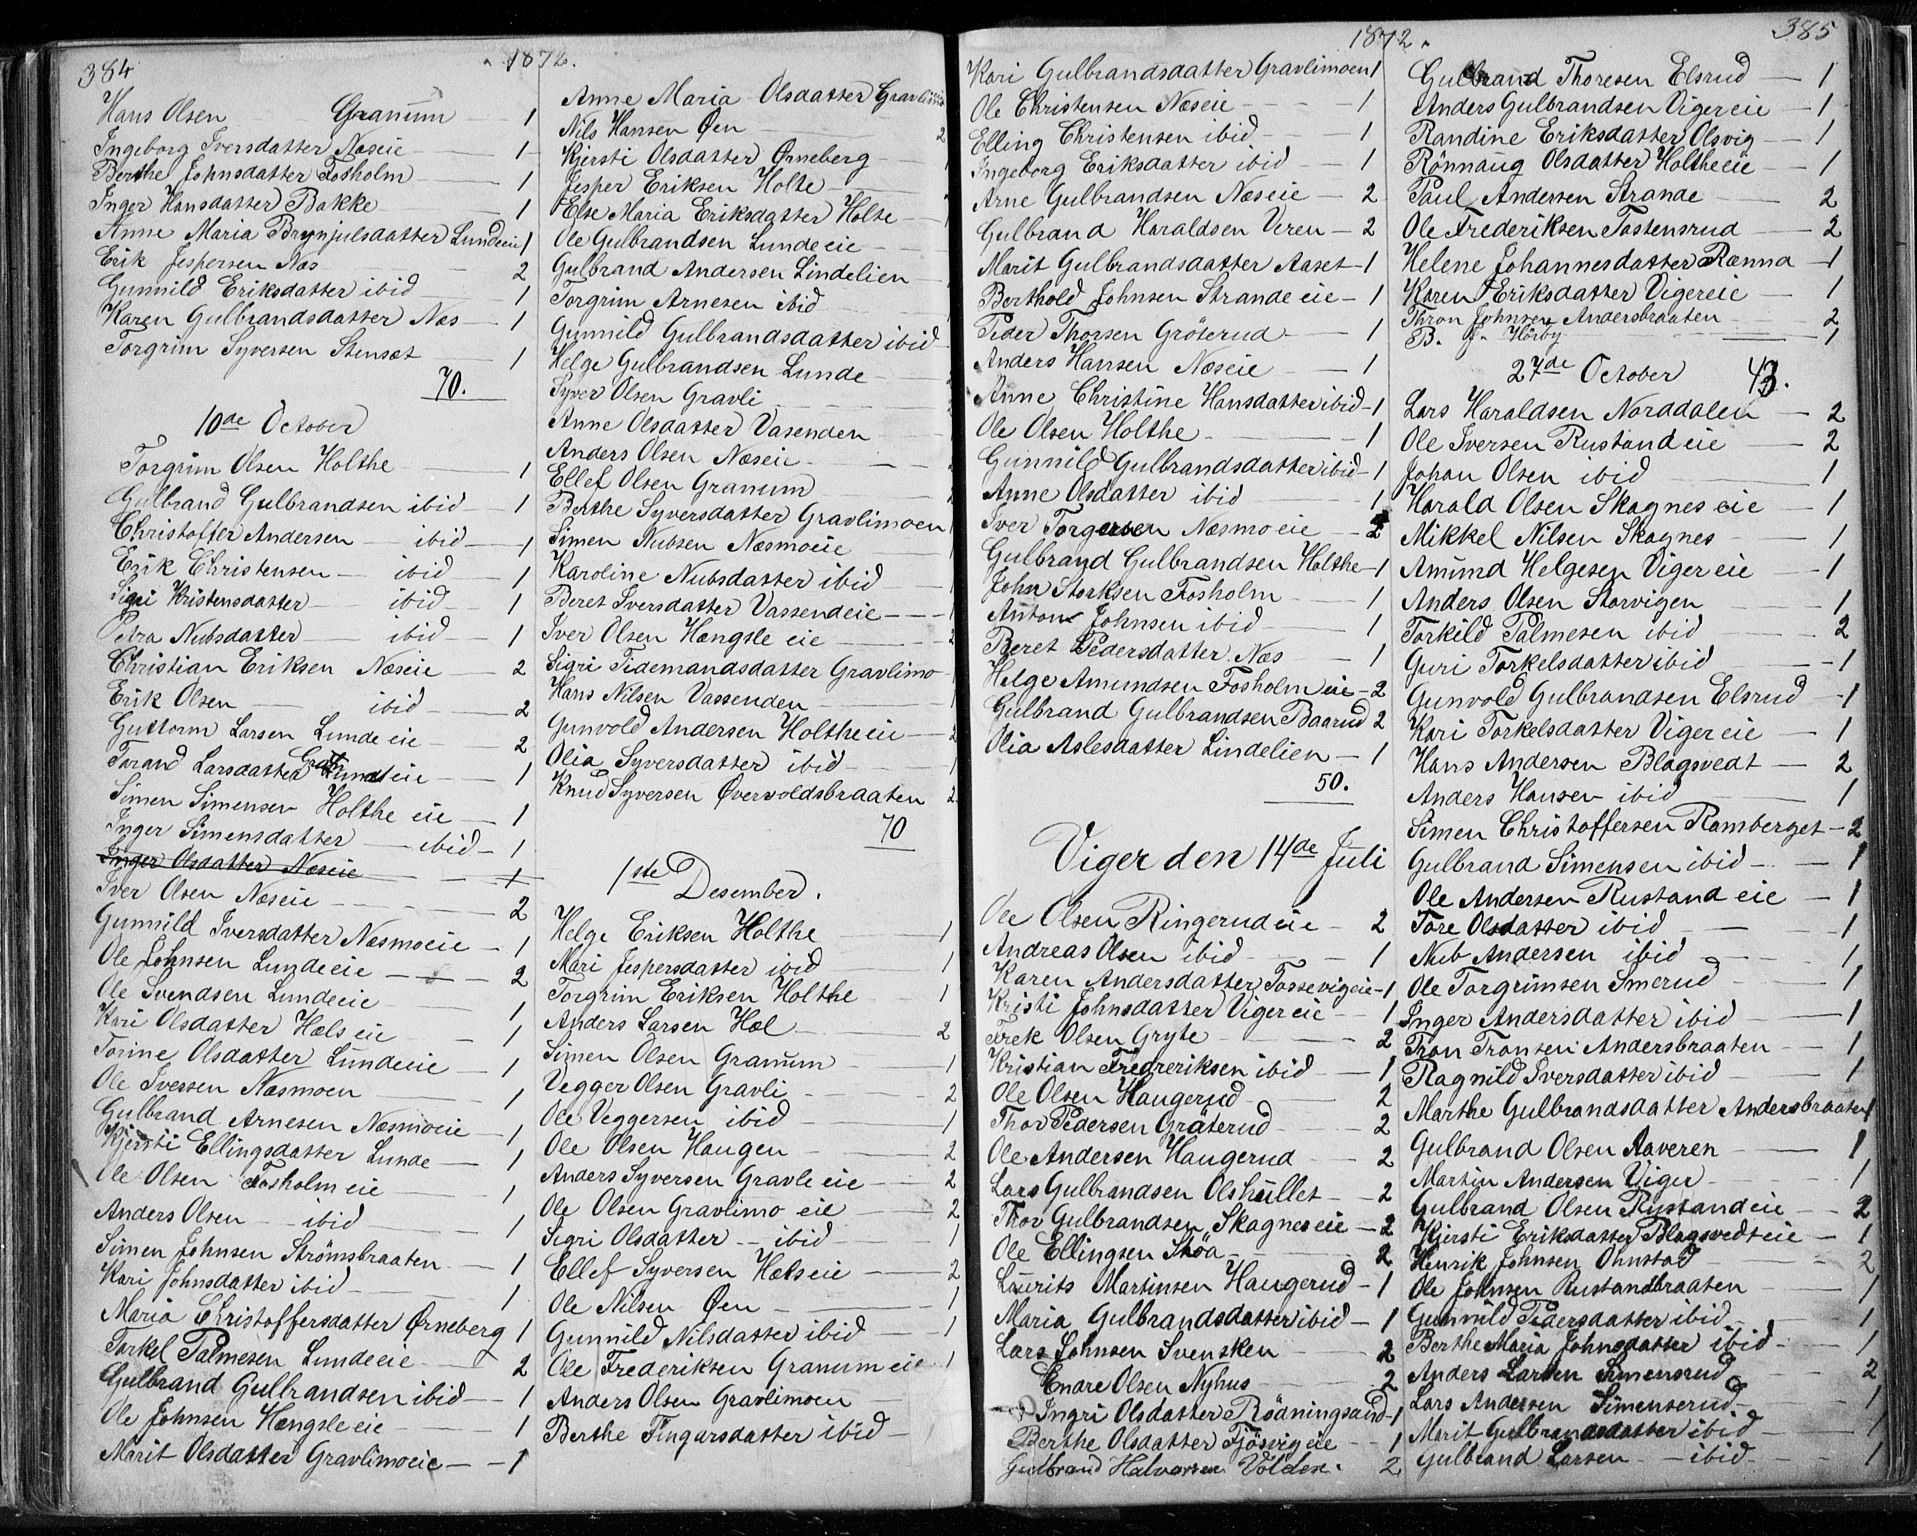 384
1872.
Hans Olsen Granum — 1
Ingeborg Iversdatter Næseie — 1
Berthe Johnsdatter Fosholm — 1
Inger Hansdatter Bakke — 1
Anne Maria Brynjulsdatter Lundeeie 1
Erik Jespersen Næs — 2
Gunnild Eriksdatter ibid — 1
Karen Gulbrandsdatter Næs — 1
Torgrim Syversen Stensæt — 1
70.
10de October
Torgrim Olsen Holthe — 1
Gulbrand Gulbrandsen ibid — 1
Christoffer Andersen — ibid — 1
Erik Christensen — ibid — 1
Sigri Kristensdatter — ibid — 1
Petra Nubsdatter — ibid — 1
Christian Eriksen Næseie — 2
Erik Olsen ibid — 2
Guttorm Larsen Lundeeie — 2
Torand Larsdatter Lundeeie — 1
Simen Simensen Holthe eie — 1
Inger Simensdatter — ibid — 1
Inger Olsdatter Næseie — 1
Iver Olsen Næseie — 2
Gunnild Iversdatter Næsmoeie — 1
Ole Johnsen Lundeeie — 2
Ole Svendsen Lundeeie — 1
Kari Olsdatter Hælseie — 1
Torine Olsdatter Lundeeie — 1
Ole Iversen Næsmoen — 1
Gulbrand Arnesen Næsmoeie — 1
Kjersti Ellingsdatter Lunde — 1
Ole Olsen Fosholmeie — 1
Anders Olsen — ibid — 1
Simen Johnsen Strömsbraaten — 1
Kari Johnsdatter ibid — 1
Maria Christoffersdatter Ørneberg 1
Torkel Palmesen Lundeeie — 2
Gulbrand Gulbrandsen ibid — 1
Ole Johnsen Hængsle eie — 1
Marit Olsdatter Gravlimoeie — 1
Anne Maria Olsdatter Gravlimo
Nils Hansen Øen — 2
Kjersti Olsdatter Ørneberg —
Jesper Eriksen Holte —
Else Maria Eriksdatter Holte —
Ole Gulbrandsen Lundeeie —
Gulbrand Andersen Lindelien —
Torgrim Arnesen ibid
Gunnild Gulbrandsdatter ibid
Helge Gulbrandsen Lunde —
Syver Olsen Gravli —
Anne Olsdatter Vasenden —
Anders Olsen Næseie —
Ellef Olsen Granum
Berthe Syversdatter Gravlimoen
Simen Nubsen Næsmoeie
Karoline Nubsdatter ibid —
Beret Iversdatter Vassendeie — 1
Iver Olsen Hængsle eie — 2
Sigri Tidemandsdatter Gravlimo
Hans Nilsen Vassenden — 1
Gunvold Andersen Holtheeie — 2
Olia Syversdatter ibid — 1
Knud Syversen Øvervoldsbraaten 2
70
1ste Desember.
Helge Eriksen Holthe 1
Mari Jespersdatter ibid 1
Torgrim Eriksen Holthe 1
Anders Larsen Hæl — 2
Simen Olsen Granum — 1
Vegger Olsen Gravli — 2
Ole Veggersen ibid — 1
Ole Olsen Haugen — 2
Anders Syversen Gravle eie — 2
Ole Olsen Gravlimo eie — 2
Sigri Olsdatter — ibid — 1
Ellef Syversen Hælseie — 2
Ole Nilsen Øen — 1
Gunnild Nilsdatter ibid — 1
Ole Frederiksen Granumeie 1
Anders Olsen Gravlimoen —
Berthe Fingarsdatter ibid — 1
1872.
385
Kari Gulbrandsdatter Gravlimoen 1
Ole Christensen Næseie — 1
Elling Christensen ibid — 1
Ingeborg Eriksdatter ibid — 1
Arne Gulbrandsen Næseie — 2
Gulbrand Haraldsen Veren — 2
Marit Gulbrandsdatter Aaset — 1
Berthold Johnsen Strandeeie — 1
Peder Thorsen Gröterud — 1
Anders Hansen Næseie — 1
Anne Christine Hansdatter ibid — 1
Ole Olsen Holthe — 1
Gunnild Gulbrandsdatter ibid — 1
Anne Olsdatter ibid — 1
Iver Torgersen Næsmoeie — 2
Gulbrand Gulbrandsen Holthe — 1
John Storksen Fosholm — 1
Anton Johnsen ibid — 1
Beret Pedersdatter Næs — 1
Helge Amundsen Fosholmeie — 2
Gulbrand Gulbrandsen Baarud 2
Olia Aslesdatter Lindelien — 1
50.
Viger den 14de Juli
Ole Olsen Ringerudeie — 2
Andreas Olsen ibid — 1
Karen Andersdatter Fossevigeie — 1
Kristi Johnsdatter Vigereie — 1
Frek Olsen Gryte — 2
Kristian Fredreriksen ibid — 1
Ole Olsen Haugerud — 2
Thor Pedersen Gräterud — 2
Ole Andersen Haugerud — 2
Lars Gulbrandsen Olshullet — 2
Thov Gulbrandsen Skagneseie — 2
Ole Ellingsen Stöa — 2
Laurits Martinsen Haugerud — 1
Maria Gulbrandsdatter ibid — 1
Lars Johnsen Svensken — 2
Endre Olsen Nyhus — 2
Ingri Olsdatter Rödningsand — 1
Berthe Olsdatter Fjösvigeie — 1
Gulbrand Halvorsen Volden — 2
Gulbrand Thoresen Elsrud — 1
Anders Gulbrandsen Vigereie — 1
Randine Eriksdatter Olsvig — 1
Rönnaug Olsdatter Holtheeie — 1
Paul Andersen Strande — 2
Ole Frederiksen Tostensrud — 2
Helene Johannesdatter Rænna — 1
Karen Eriksdatter Vigereie — 1
Thron Johnsen Andersbraaten — 2
B. J. Hörby — 1
27de October 43.
Lars Haraldsen Norddalen — 2
Ole Iversen Rustandeie — 2
Johan Olsen ibid — 1
Harald Olsen Skagneseie — 1
Mikkel Nilsen Skagnes — 1
Amund Helgesen Vigereie — 1
Anders Olsen Storvigen — 1
Torkild Palmesen ibid — 2
Guri Torkelsdatter ibid — 1
Gunvold Gulbrandsen Elsrud — 1
Kari Torkelsdatter Vigereie — 1
Hans Andersen Blagsvedt — 2
Anders Hansen ibid — 1
Simen Christoffersen Ramberget — 2
Gulbrand Simensen ibid — 1
Ole Andersen Rustand eie — 1
Tore Olsdatter ibid — 1
Nub Andersen ibid — 1
Ole Torgrimsen Smerud — 1
Inger Andersdatter ibid — 1
Tron Tronsen Andersbraaten — 1
Ragnild Iversdatter ibid — 1
Marthe Gulbrandsdatter Andersbraaten 1
Gulbrand Olsen Aaveren — 1
Martin Andersen Viger — 1
Gulbrand Olsen Rustandeie — 2
Kjersti Eriksdatter Blagsvedteie — 1
Henrik Johnsen Onnstad — 2
Ole Johnsen Rustandbraaten 1
Gunnild Pedersdatter ibid — 1
Berthe Maria Johnsdatter ibid — 1
Anders Larsen Simensrud 2
Lars Andersen Simenserud — 1
Marit Gulbrandsdatter ibid — 1
Gulbrand Larsen — ibid — 1